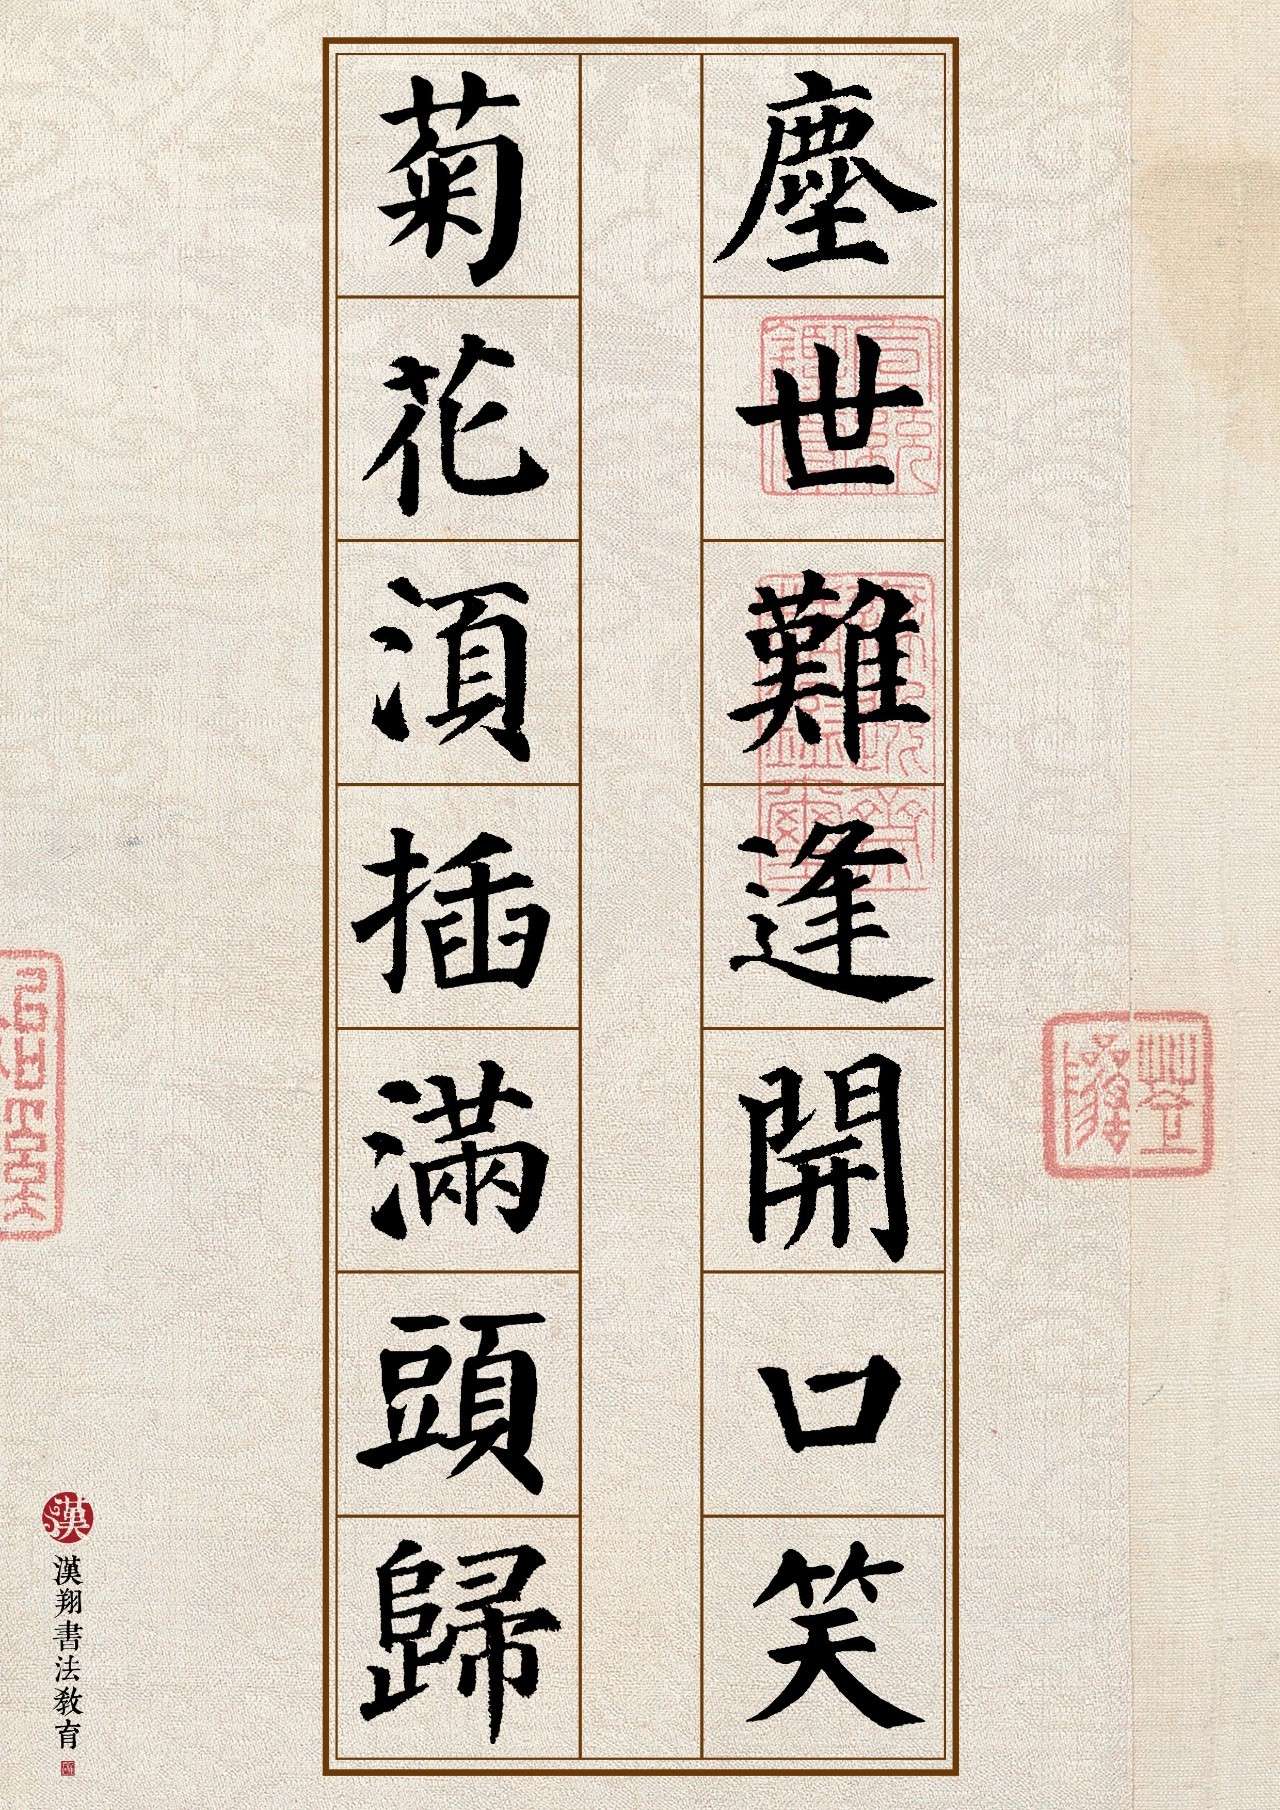 塵世難逢開口笑
菊花湏插滿頭歸
漢
漢翔書法教育